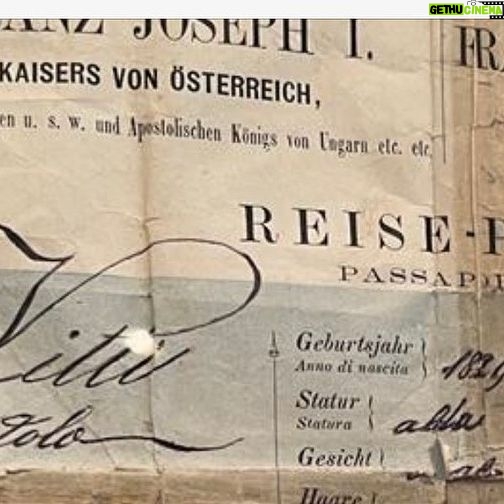 GETHUCINEMA
JOSEPH I.
KAISERS VON ÖSTERREICH,
en u. s. w. und Apostolischen Königs von Ungarn etc. etc.
REISE-P
PASSAPO
Geburtsjahr
Anno di nascita
Statur
Statura
alta
Gesicht
Haare